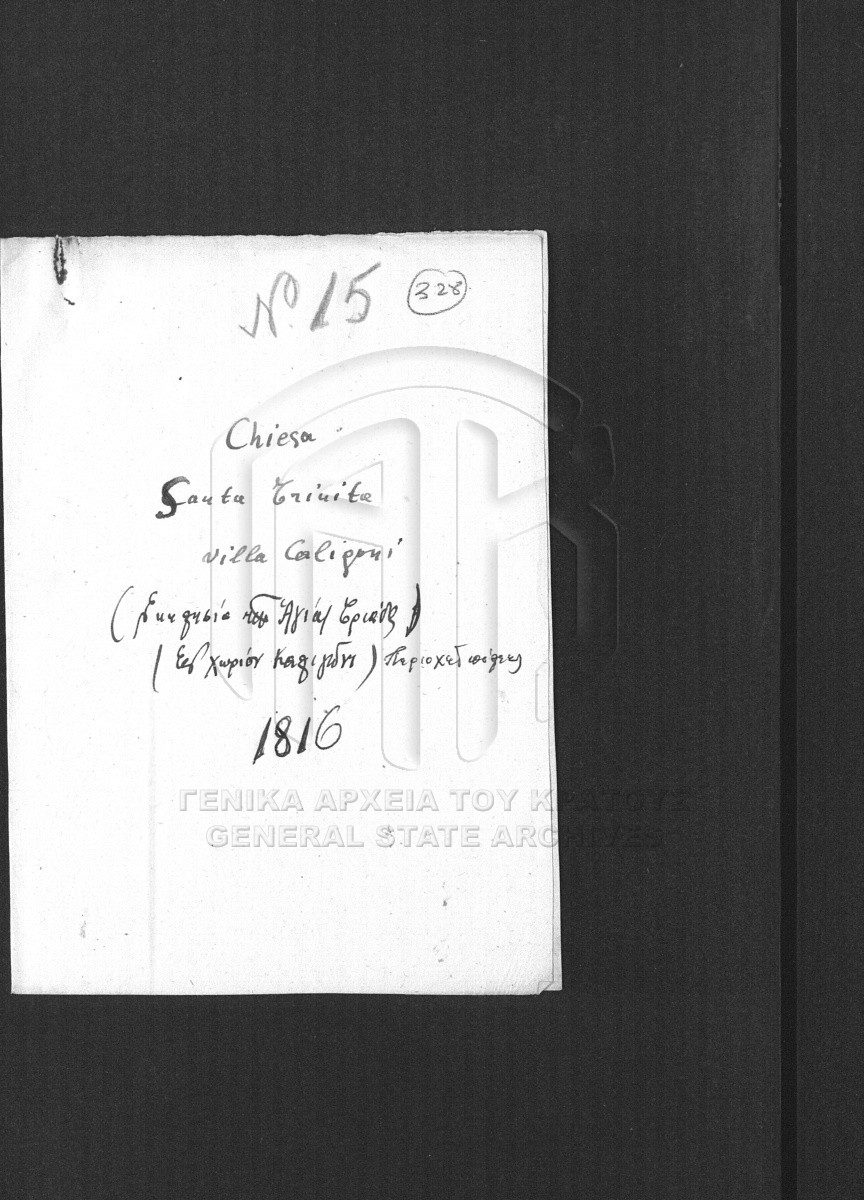 Nº 15 328
Chiesa
Santa Trinita
villa Caligoni
(Εκκλησία της Αγίας Τριάδος)
(Εις χωρίον Καλιγώνι) Περιοχή πόλεως
1816
ΓΕΝΙΚΑ ΑΡΧΕΙΑ ΤΟΥ ΚΡΑΤΟΥΣ
GENERAL STATE ARCHIVES